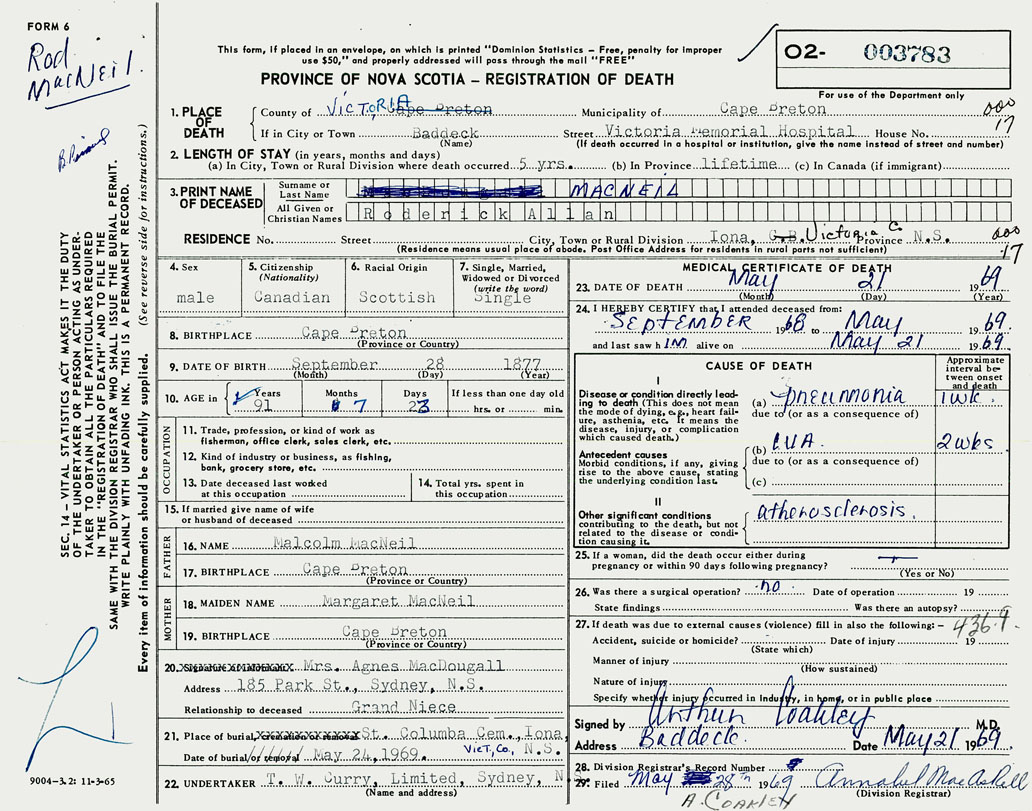 FORM 6
Rod
MacNeil.
This form, if placed in an envelope, on which is printed "Dominion Statistics – Free, penalty for improper
use $50," and properly addressed will pass through the mail "FREE"
PROVINCE OF NOVA SCOTIA – REGISTRATION OF DEATH
O2- 003783
For use of the Department only
000
17
1. PLACE OF DEATH
County of VICTORIA Cape Breton Municipality of Cape Breton
If in City or Town Baddeck Street Victoria Memorial Hospital House No.
(Name) (If death occurred in a hospital or institution, give the name instead of street and number)
2. LENGTH OF STAY (in years, months and days)
(a) In City, Town or Rural Division where death occurred 5 yrs. (b) In Province lifetime (c) In Canada (if immigrant)
3. PRINT NAME OF DECEASED
Surname or Last Name MACNEIL
All Given or Christian Names Roderick Allan
RESIDENCE No. Street City, Town or Rural Division Iona, C.B. Victoria Co Province N.S.
(Residence means usual place of abode. Post Office Address for residents in rural parts not sufficient)
000
17
4. Sex
male
5. Citizenship
(Nationality)
Canadian
6. Racial Origin
Scottish
7. Single, Married,
Widowed or Divorced
(write the word)
Single
8. BIRTHPLACE Cape Breton
(Province or Country)
9. DATE OF BIRTH September 28 1877
(Month) (Day) (Year)
10. AGE in Years Months Days If less than one day old
91 7 23 hrs. or min.
OCCUPATION
11. Trade, profession, or kind of work as
fisherman, office clerk, sales clerk, etc.
12. Kind of industry or business, as fishing,
bank, grocery store, etc.
13. Date deceased last worked
at this occupation
14. Total yrs. spent in
this occupation
15. If married give name of wife
or husband of deceased
FATHER
16. NAME Malcolm MacNeil
17. BIRTHPLACE Cape Breton
(Province or Country)
MOTHER
18. MAIDEN NAME Margaret MacNeil
19. BIRTHPLACE Cape Breton
(Province or Country)
20. Mrs. Agnes MacDougall
Address 185 Park St., Sydney, N.S.
Relationship to deceased Grand Niece
21. Place of burial, cremation or removal St. Columba Cem., Iona,
Vict, Co, N.S.
Date of burial or removal May 24, 1969.
22. UNDERTAKER T. W. Curry, Limited, Sydney, N.S.
(Name and address)
MEDICAL CERTIFICATE OF DEATH
23. DATE OF DEATH May 21 1969
(Month) (Day) (Year)
24. I HEREBY CERTIFY that I attended deceased from:
SEPTEMBER 1968 to May 1969.
and last saw h IM alive on May 21 1969.
CAUSE OF DEATH
Approximate
interval be-
tween onset
and death
I
Disease or condition directly lead-
ing to death (This does not mean
the mode of dying, e.g., heart fail-
ure, asthenia, etc. It means the
disease, injury, or complication
which caused death.)
(a) pneumonia 1 wk.
due to (or as a consequence of)
Antecedent causes
Morbid conditions, if any, giving
rise to the above cause, stating
the underlying condition last.
(b) C.V.A. 2 wks
due to (or as a consequence of)
(c)
II
Other significant conditions
contributing to the death, but not
related to the disease or condi-
tion causing it.
atherosclerosis.
25. If a woman, did the death occur either during
pregnancy or within 90 days following pregnancy?
(Yes or No)
26. Was there a surgical operation? no Date of operation 19
State findings Was there an autopsy?
27. If death was due to external causes (violence) fill in also the following: – 436.9
Accident, suicide or homicide? Date of injury 19
(State which)
Manner of injury
(How sustained)
Nature of injury
Specify whether injury occurred in Industry, in home, or in public place
Signed by Arthur Coakley M.D.
Address Baddeck. Date May 21 1969.
28. Division Registrar's Record Number
29. Filed May 28th 1969
(Division Registrar)
A. COAKLEY
SEC. 14 – VITAL STATISTICS ACT MAKES IT THE DUTY
OF THE UNDERTAKER OR PERSON ACTING AS UNDER-
TAKER TO OBTAIN ALL THE PARTICULARS REQUIRED
IN THE "REGISTRATION OF DEATH" AND TO FILE THE
SAME WITH THE DIVISION REGISTRAR WHO SHALL ISSUE THE BURIAL PERMIT.
WRITE PLAINLY WITH UNFADING INK. THIS IS A PERMANENT RECORD.
Every item of information should be carefully supplied. (See reverse side for instructions.)
9004-3.2: 11-3-65